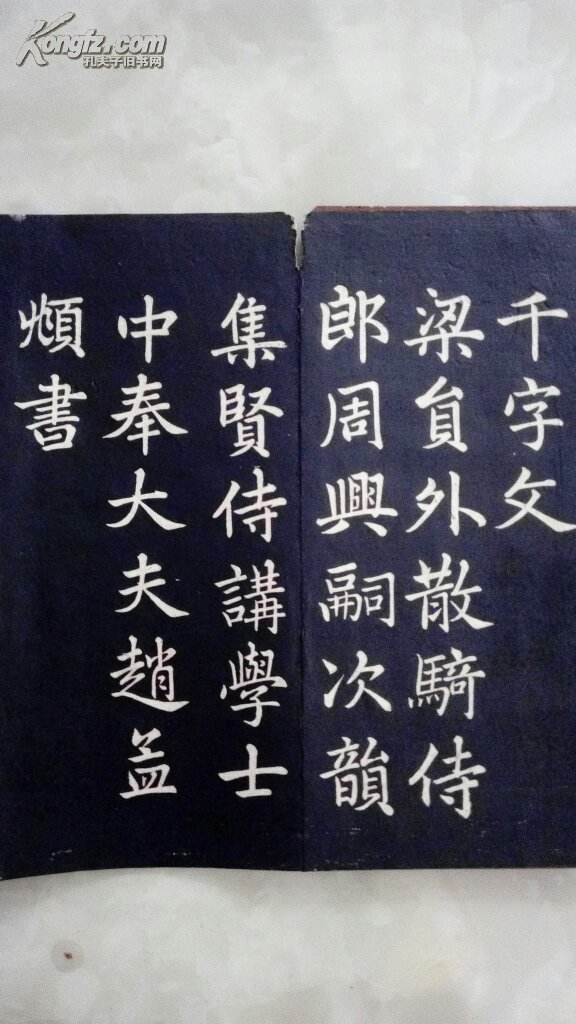 Kongfz.com
孔夫子旧书网
千字文
梁員外散騎侍
郎周興嗣次韻
集賢侍講學士
中奉大夫趙孟
頫書